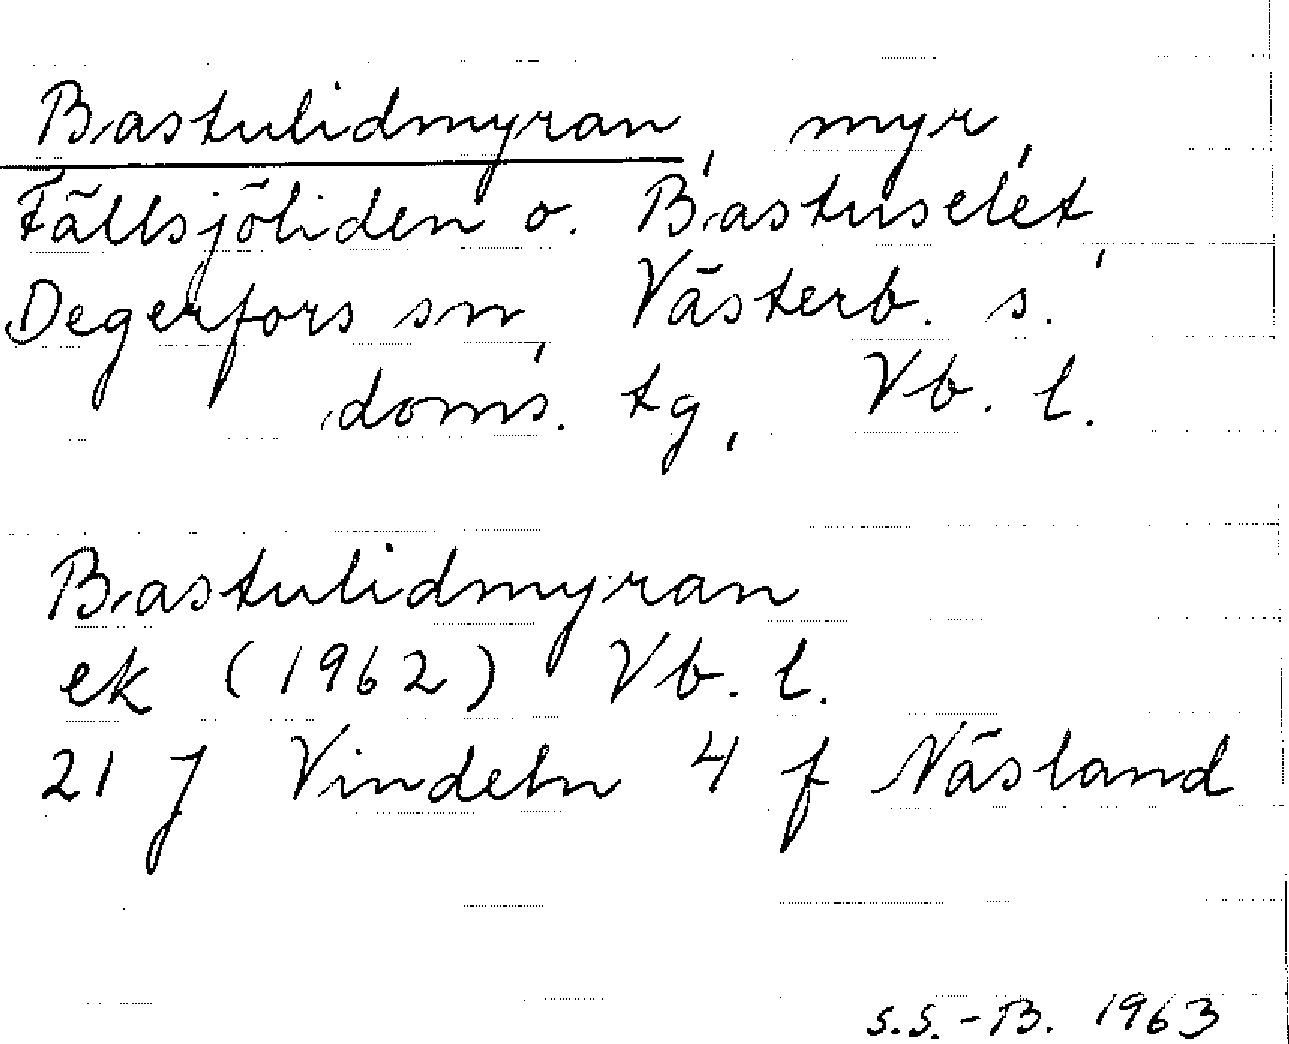 Bastulidmyran, myr,
Fällsjöliden o. Bastuselet,
Degerfors sn, Västerb. s.
doms. tg, Vb. l.
Bastulidmyran
ek (1962) Vb. l.
21 J Vindeln 4 f Näsland
S.S.-B. 1963